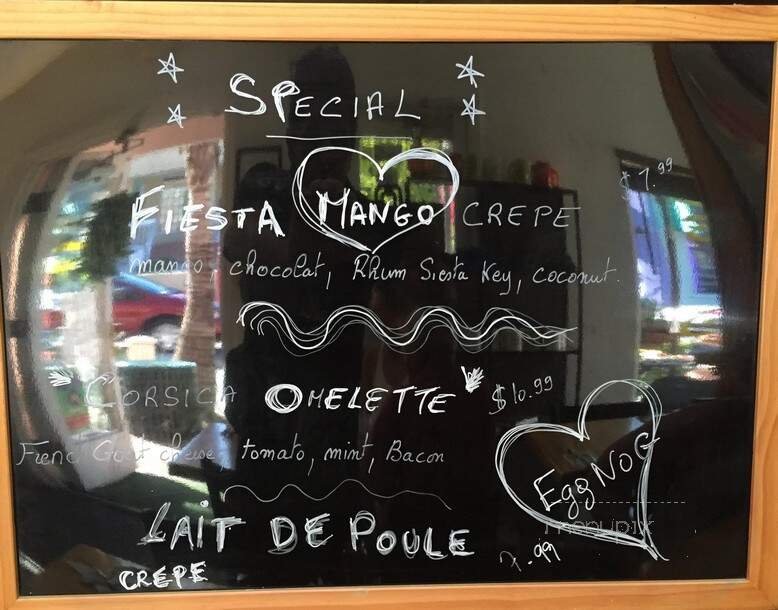 SPECIAL
$7.99
FIESTA MANGO CREPE
mango, chocolat, Rhum Siesta Key, coconut.
CORSICA OMELETTE $10.99
Frenc Goat cheese, tomato, mint, Bacon
Egg NOG
menupix
LAIT DE POULE
7.99
CREPE